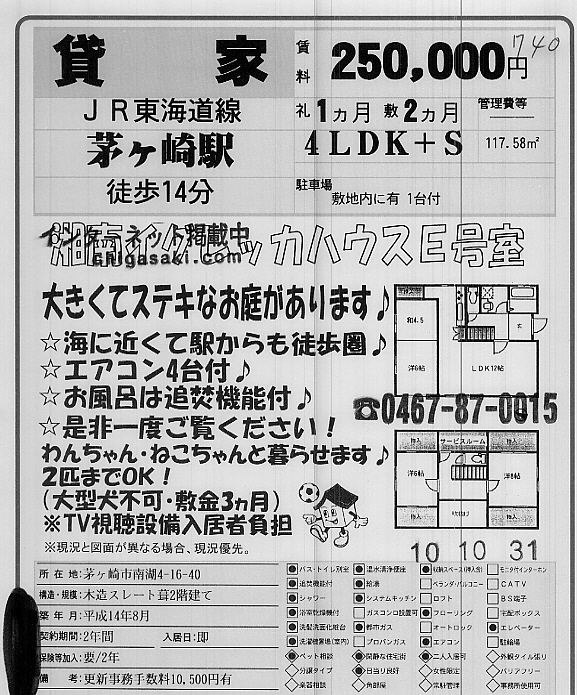 貸家
賃料 250,000円
740
JR東海道線
茅ヶ崎駅
徒歩14分
礼 1ヵ月 敷 2ヵ月
管理費等
4LDK+S
117.58㎡
駐車場
敷地内に有 1台付
インターネット掲載中
chigasaki.com
ハウスE号室
大きくてステキなお庭があります♪
☆海に近くて駅からも徒歩圏♪
☆エアコン4台付♪
☆お風呂は追焚機能付♪
☆是非一度ご覧ください!
わんちゃん・ねこちゃんと暮らせます♪
2匹までOK!
(大型犬不可・敷金3ヵ月)
※TV視聴設備入居者負担
※現況と図面が異なる場合、現況優先。
和4.5
洋6帖
LDK12帖
☎0467-87-0015
物入
サービスルーム
物入
洋6帖
洋8帖
物入
吹抜け
物入
10 10 31
所在地:茅ヶ崎市南湖4-16-40
構造・規模:木造スレート葺2階建て
築年月:平成14年8月
契約期間:2年間 入居日:即
保険等加入:要/2年
備考:更新事務手数料10,500円有
●バス・トイレ別室 ●温水清浄便座 ●収納スペース(押入含) □モニタ付インターホン
●追焚機能 ●給湯 □ベランダ・バルコニー □CATV
●シャワー ●システムキッチン □ロフト □BS端子
●浴室乾燥機付 □ガスコンロ設置可 ●フローリング □宅配ボックス
●洗髪洗面化粧台 ●都市ガス □オートロック ●エレベーター
●洗濯機置場(室内) □プロパンガス ●エアコン □駐輪場
◆ペット相談 ◆閑静な住宅街 ◆二人入居可 ◇外観タイル張り
◇分譲タイプ ◆日当り良好 ◇女性限定 ◇バリアフリー
◇楽器相談 ◇角部屋 ◇常駐管理 ◇事務所使用可